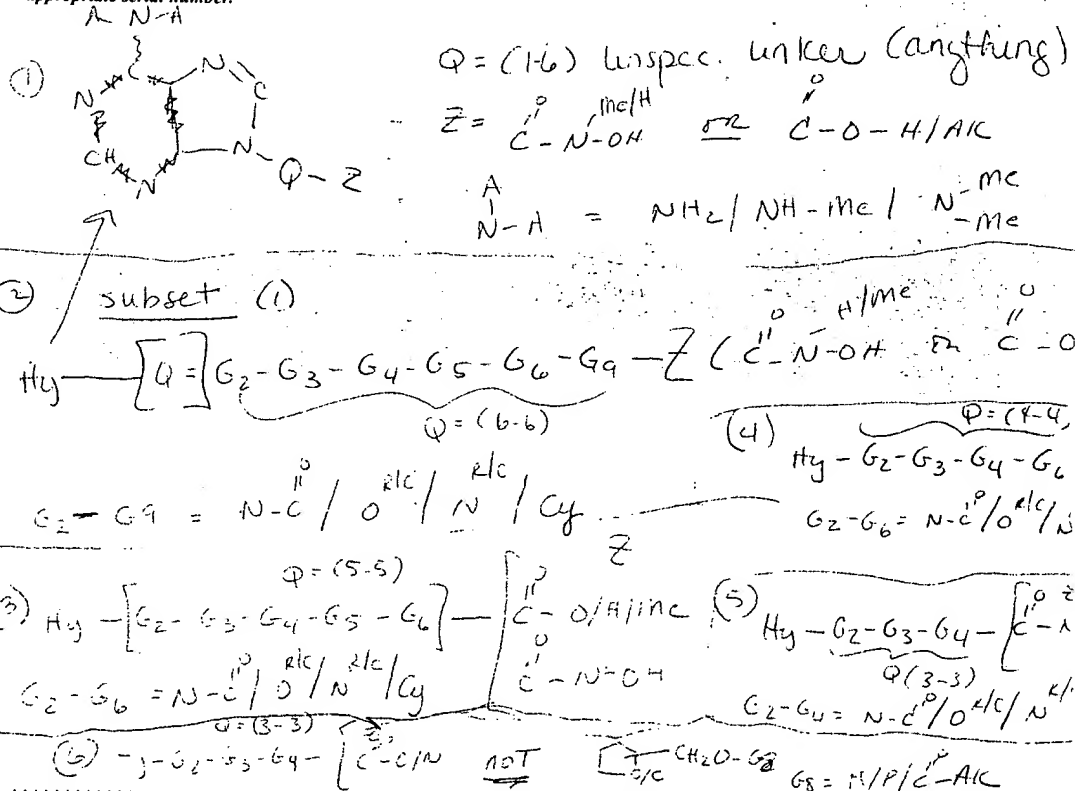 appropriate serial number.
A N-A
① N C N C CH N N-Q-Z
Q = (1-6) unspec. linker (anything)
Z = C(=O)-N(Me/H)-OH or C(=O)-O-H/AK
A N-A = NH2 / NH-Me / N-Me -Me
② subset (1)
Hy-[Q=]G2-G3-G4-G5-G6-G9-Z (C(=O)-N(H/Me)-OH or C(=O)-O
Q = (6-6)
G2-G9 = N-C(=O) / O R/C / N R/C / Cy
(4) Q=(4-4)
Hy-G2-G3-G4-G6
G2-G6 = N-C(=O) / O R/C / N
3) Q=(5-5) Z
Hy-[G2-G3-G4-G5-G6]-[C(=O)-O/H/Me
C(=O)-N-OH
G2-G6 = N-C(=O) / O R/C / N R/C / Cy
(5) Hy-G2-G3-G4-[C(=O)-N
Q(3-3)
G2-G4 = N-C(=O) / O R/C / N R/
(6) Q=(3-3)
-G2-G3-G4-[C-O/N not O/C CH2O-G8
G8 = H/P/C(=O)-AK